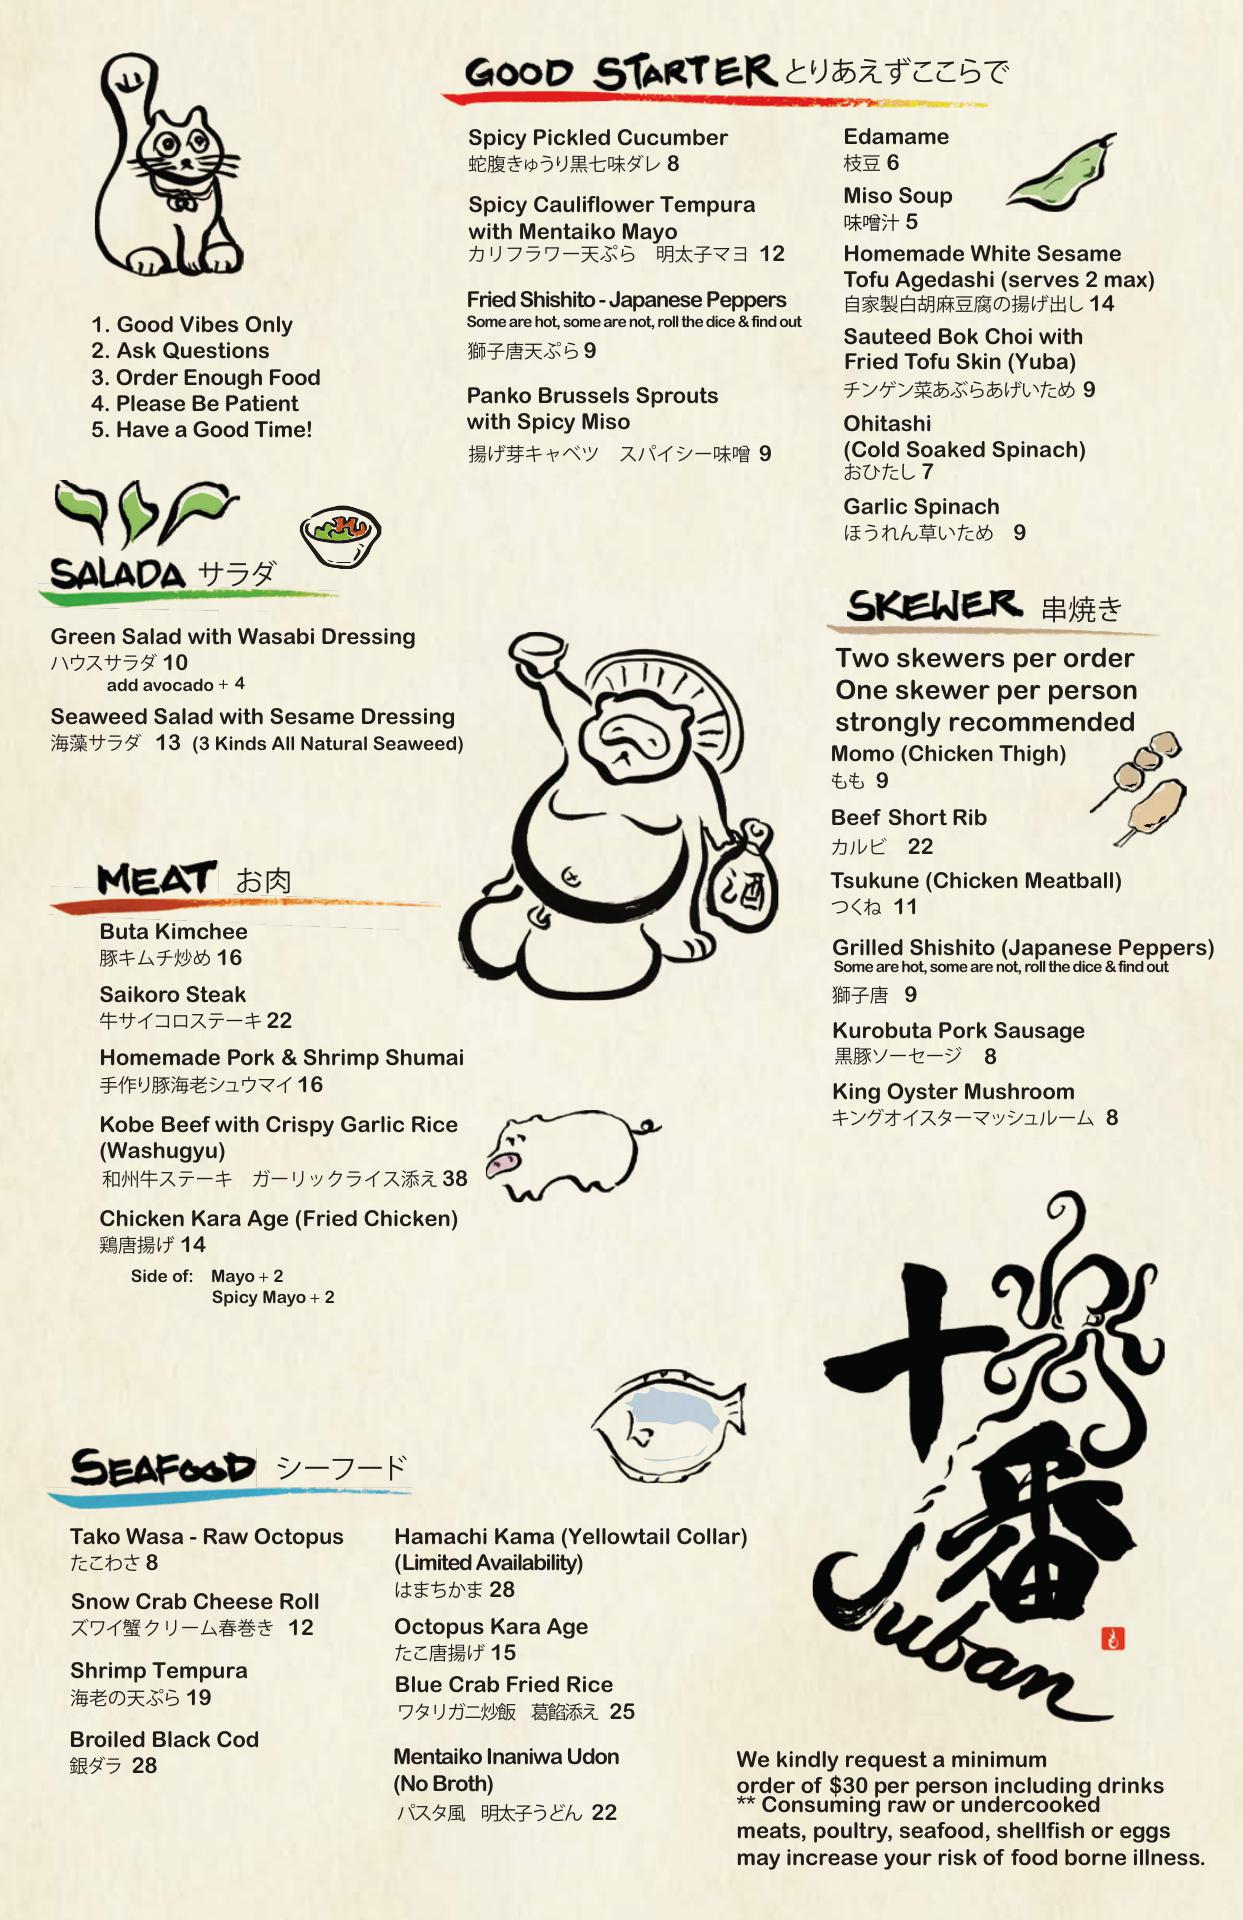 GOOD STARTER とりあえずここらで
Spicy Pickled Cucumber
蛇腹きゅうり黒七味ダレ 8
Spicy Cauliflower Tempura
with Mentaiko Mayo
カリフラワー天ぷら　明太子マヨ 12
Fried Shishito - Japanese Peppers
Some are hot, some are not, roll the dice & find out
獅子唐天ぷら 9
Panko Brussels Sprouts
with Spicy Miso
揚げ芽キャベツ　スパイシー味噌 9
Edamame
枝豆 6
Miso Soup
味噌汁 5
Homemade White Sesame
Tofu Agedashi (serves 2 max)
自家製白胡麻豆腐の揚げ出し 14
Sauteed Bok Choi with
Fried Tofu Skin (Yuba)
チンゲン菜あぶらあげいため 9
Ohitashi
(Cold Soaked Spinach)
おひたし 7
Garlic Spinach
ほうれん草いため 9
1. Good Vibes Only
2. Ask Questions
3. Order Enough Food
4. Please Be Patient
5. Have a Good Time!
SALADA サラダ
Green Salad with Wasabi Dressing
ハウスサラダ 10
add avocado + 4
Seaweed Salad with Sesame Dressing
海藻サラダ 13 (3 Kinds All Natural Seaweed)
酒
SKEWER 串焼き
Two skewers per order
One skewer per person
strongly recommended
Momo (Chicken Thigh)
もも 9
Beef Short Rib
カルビ 22
Tsukune (Chicken Meatball)
つくね 11
Grilled Shishito (Japanese Peppers)
Some are hot, some are not, roll the dice & find out
獅子唐 9
Kurobuta Pork Sausage
黒豚ソーセージ 8
King Oyster Mushroom
キングオイスターマッシュルーム 8
MEAT お肉
Buta Kimchee
豚キムチ炒め 16
Saikoro Steak
牛サイコロステーキ 22
Homemade Pork & Shrimp Shumai
手作り豚海老シュウマイ 16
Kobe Beef with Crispy Garlic Rice
(Washugyu)
和州牛ステーキ　ガーリックライス添え 38
Chicken Kara Age (Fried Chicken)
鶏唐揚げ 14
Side of: Mayo + 2
Spicy Mayo + 2
SEAFOOD シーフード
Tako Wasa - Raw Octopus
たこわさ 8
Snow Crab Cheese Roll
ズワイ蟹クリーム春巻き 12
Shrimp Tempura
海老の天ぷら 19
Broiled Black Cod
銀ダラ 28
Hamachi Kama (Yellowtail Collar)
(Limited Availability)
はまちかま 28
Octopus Kara Age
たこ唐揚げ 15
Blue Crab Fried Rice
ワタリガニ炒飯　葛餡添え 25
Mentaiko Inaniwa Udon
(No Broth)
パスタ風　明太子うどん 22
十番
Juban
We kindly request a minimum
order of $30 per person including drinks
** Consuming raw or undercooked
meats, poultry, seafood, shellfish or eggs
may increase your risk of food borne illness.